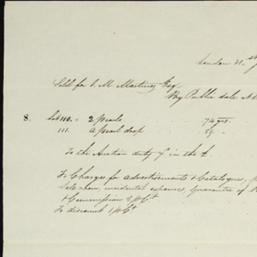 London 21st
Sold for J. M. Martinez Esq.
By Public sale
8. Lot 110. - 2 Pearls
111. a pearl drop
To the Auction duty in the £.
To Charges for Advertisements & Catalogues,
Sale room, incidental expences, Guarantee of
& Commission 2 p Ct
To discount 1 p Ct